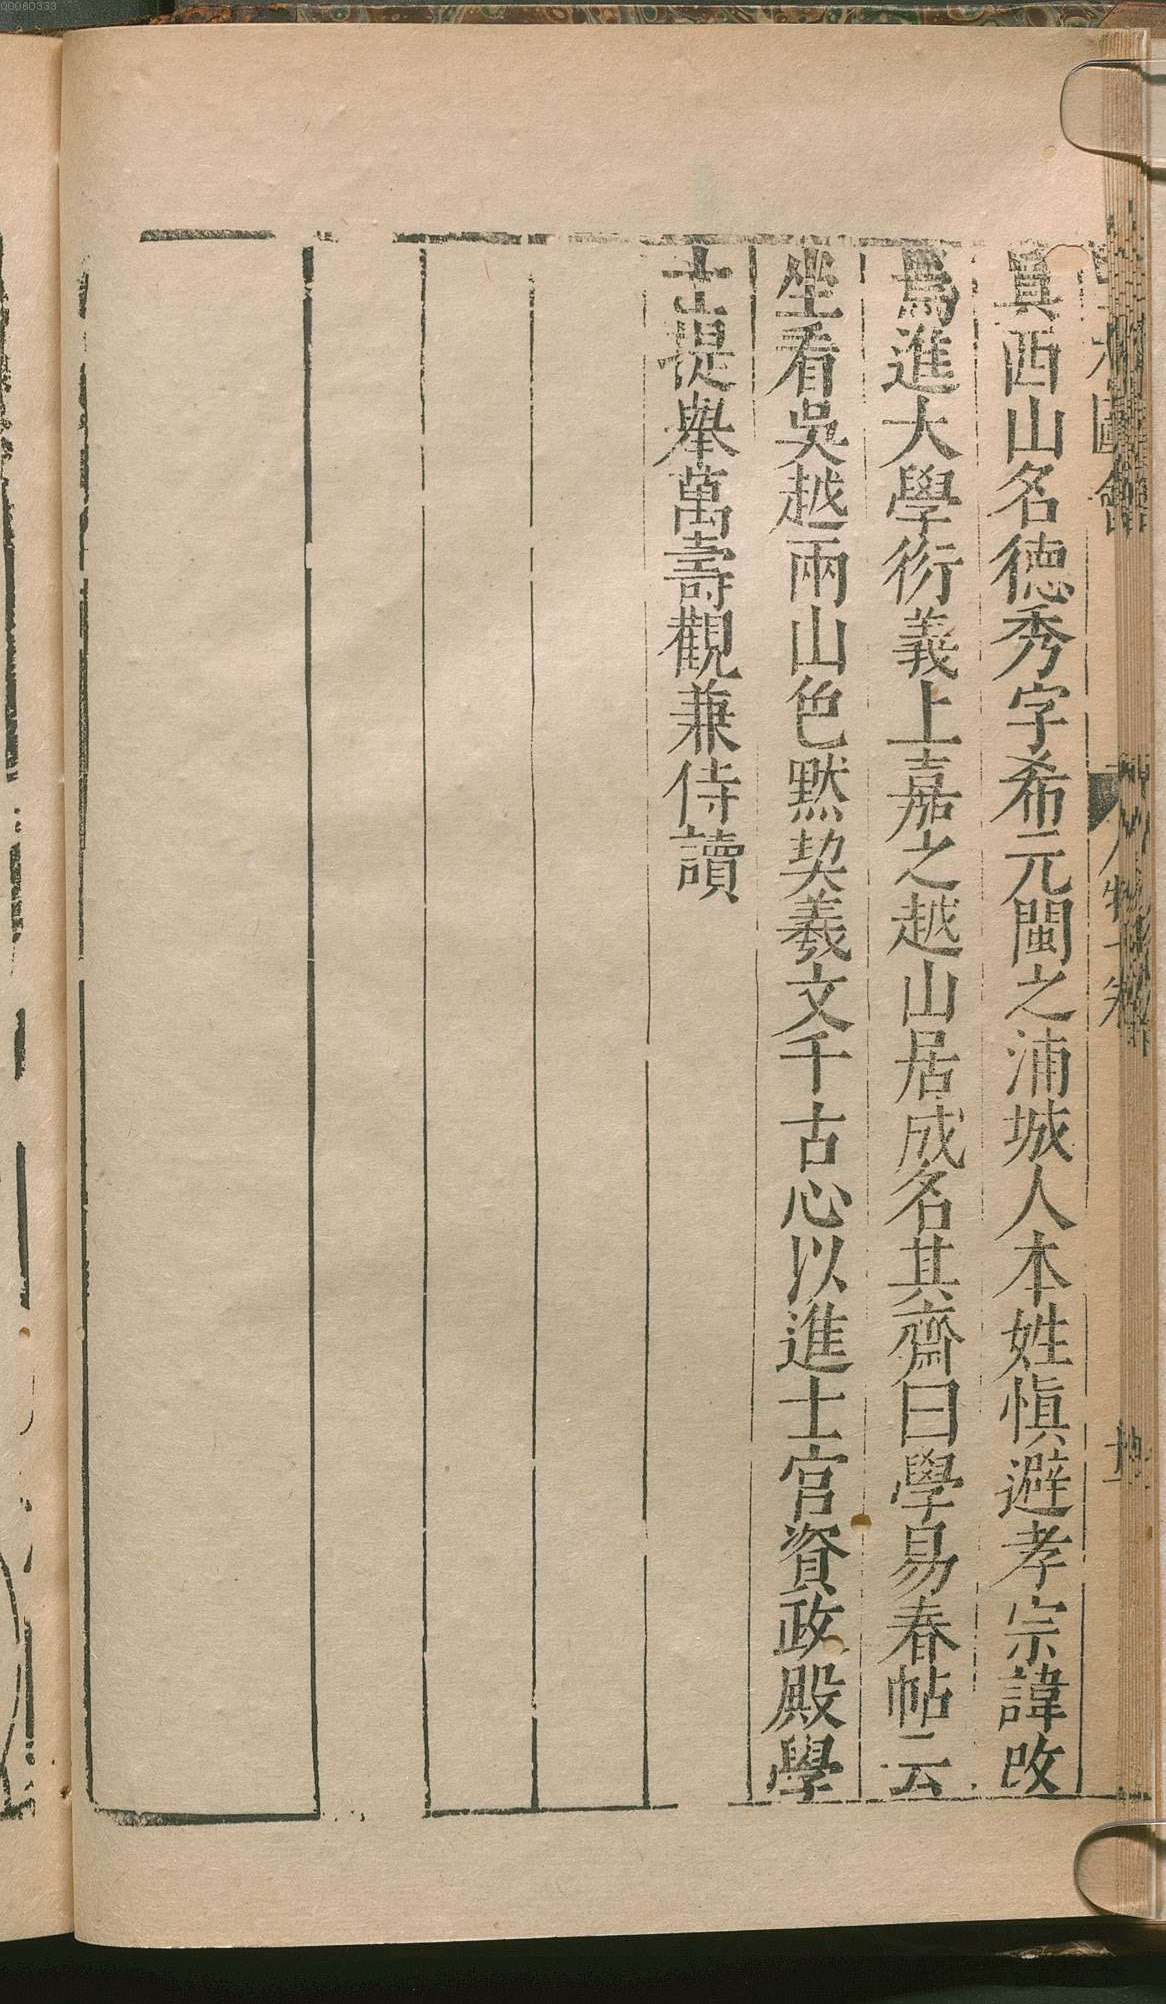 眞西山名德秀字希元閩之浦城人本姓愼避孝宗諱改
爲進大學衍義上嘉之越山居成名其齋曰學易春帖云
坐看吳越兩山色默契羲文千古心以進士官資政殿學
士提舉萬壽觀兼侍讀
00060333